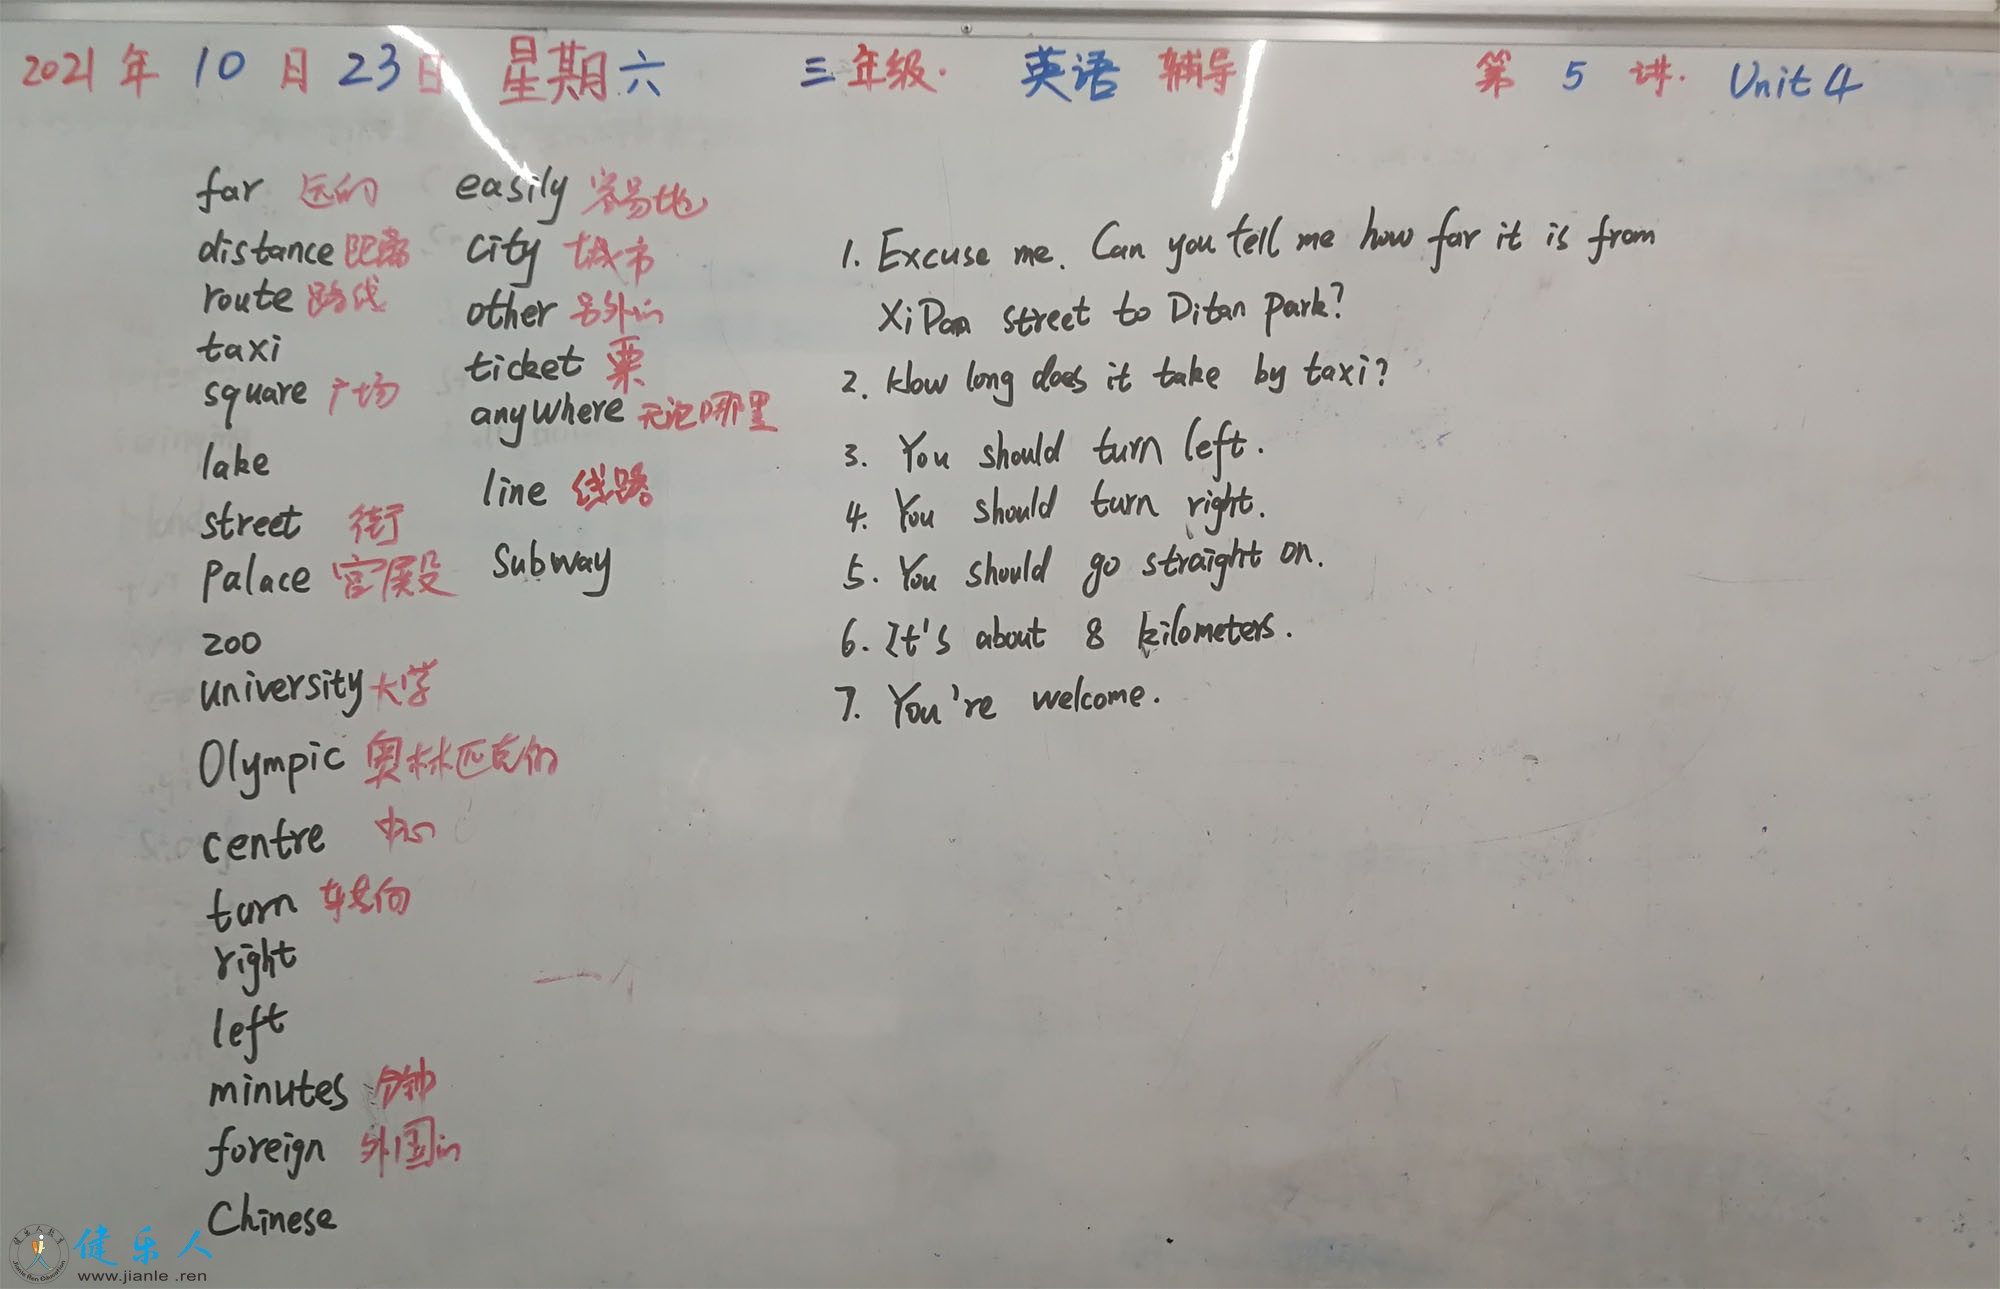 2021 年 10 月 23 日 星期六 三年级. 英语 辅导 第 5 讲. Unit 4
far 远的
distance 距离
route 路线
taxi
square 广场
lake
street 街
palace 宫殿
zoo
university 大学
Olympic 奥林匹克的
centre 中心
turn 转向
right
left
minutes 分钟
foreign 外国的
Chinese
easily 容易地
city 城市
other 另外的
ticket 票
anywhere 无论哪里
line 线路
Subway
1. Excuse me. Can you tell me how far it is from
XiDan street to Ditan park?
2. How long does it take by taxi?
3. You should turn left.
4. You should turn right.
5. You should go straight on.
6. It's about 8 kilometers.
7. You're welcome.
健乐人
www.jianle .ren